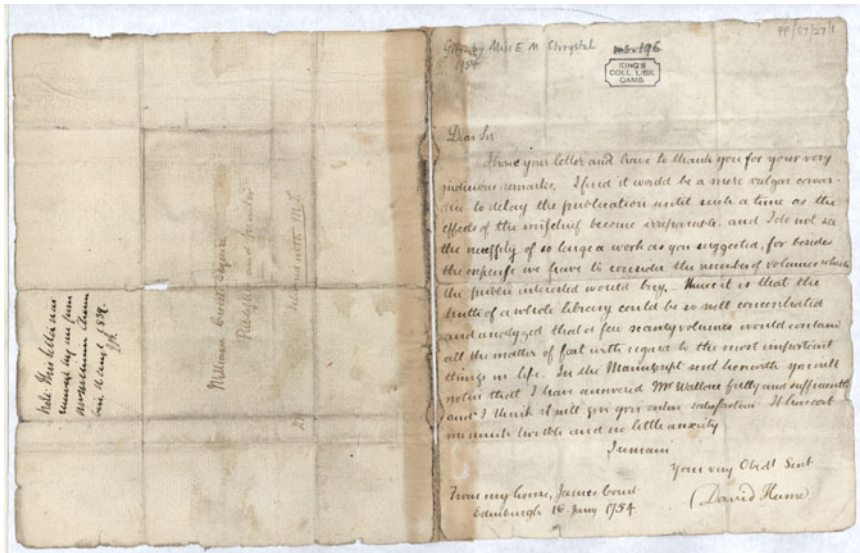 Given by Miss E. M. Chrystal
1954
ms. 196
PP/87/27/1
KING'S
COLL. LIBR.
CAMB.
Dear Sir.
I have your letter and have to thank you for your very
judicious remarks. I find it would be a mere vulgar
to delay the publication until such a time as the
effects of the mischief become irreparable, and I do not see
the necessity of so large a work as you suggested, for besides
the expense we have to consider the number of volumes which
the public interested would buy. Hence it is that the
truth of a whole library could be so well concentrated
and analyzed that a few scanty volumes would contain
all the matter of fact with regard to the most important
things in life. In the Manuscript sent herewith you will
notice that I have answered Mr Wallace fully and sufficiently
and I think it will give you entire satisfaction. It has cost
me much trouble and no little anxiety
I remain
Your very Obedt Servt
David Hume
From my home, James Court
Edinburgh 16 Jany 1754.
William Creech Esquire
Publisher and Printer
with M.S.
Note: This letter was